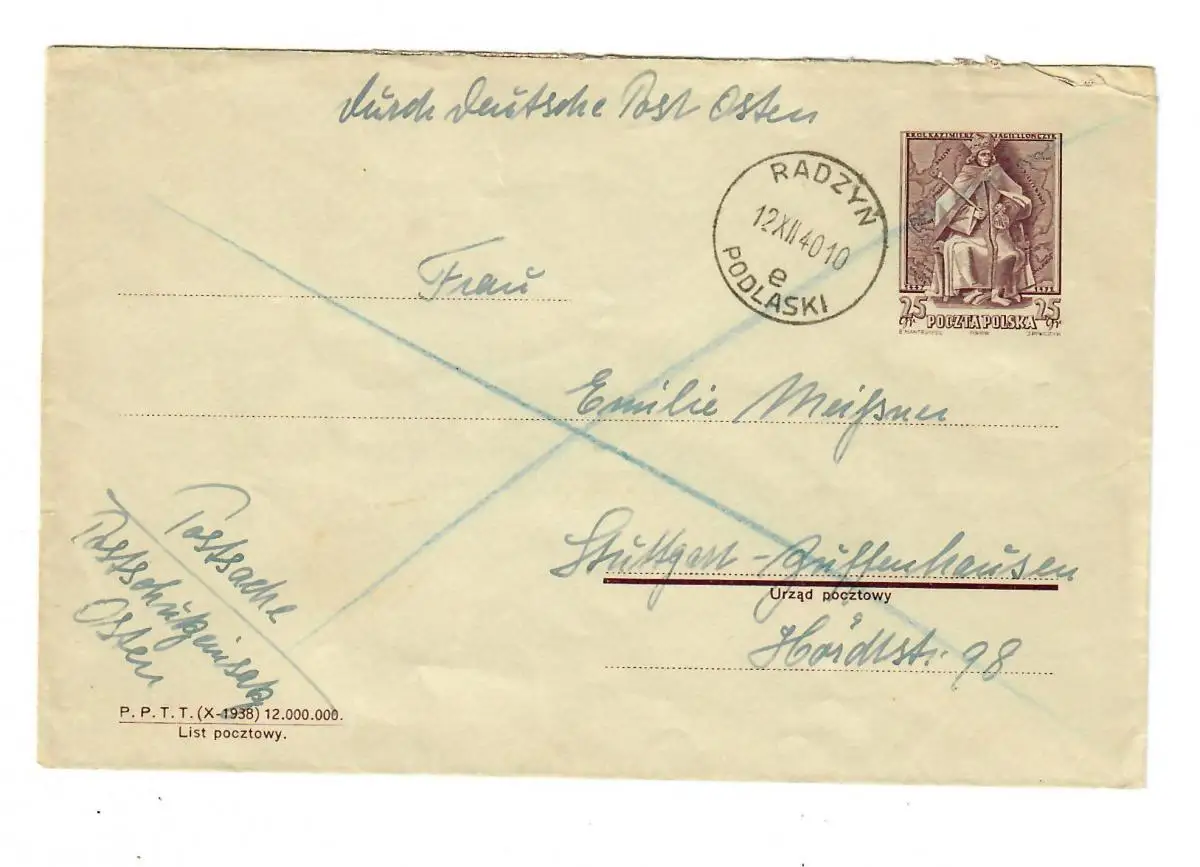 durch Deutsche Post Osten
KRÓL KAZIMIERZ JAGIELLOŃCZYK
RADZYŃ
12 XII 40 10
e
PODLASKI
25 gr POCZTA POLSKA 25 gr
Frau
Emilie Meißner
Stuttgart-Zuffenhausen
Urząd pocztowy
Hördtstr. 98
Postsache
Postschutzeinsatz
Osten
P. P. T. T. (X-1938) 12.000.000.
List pocztowy.